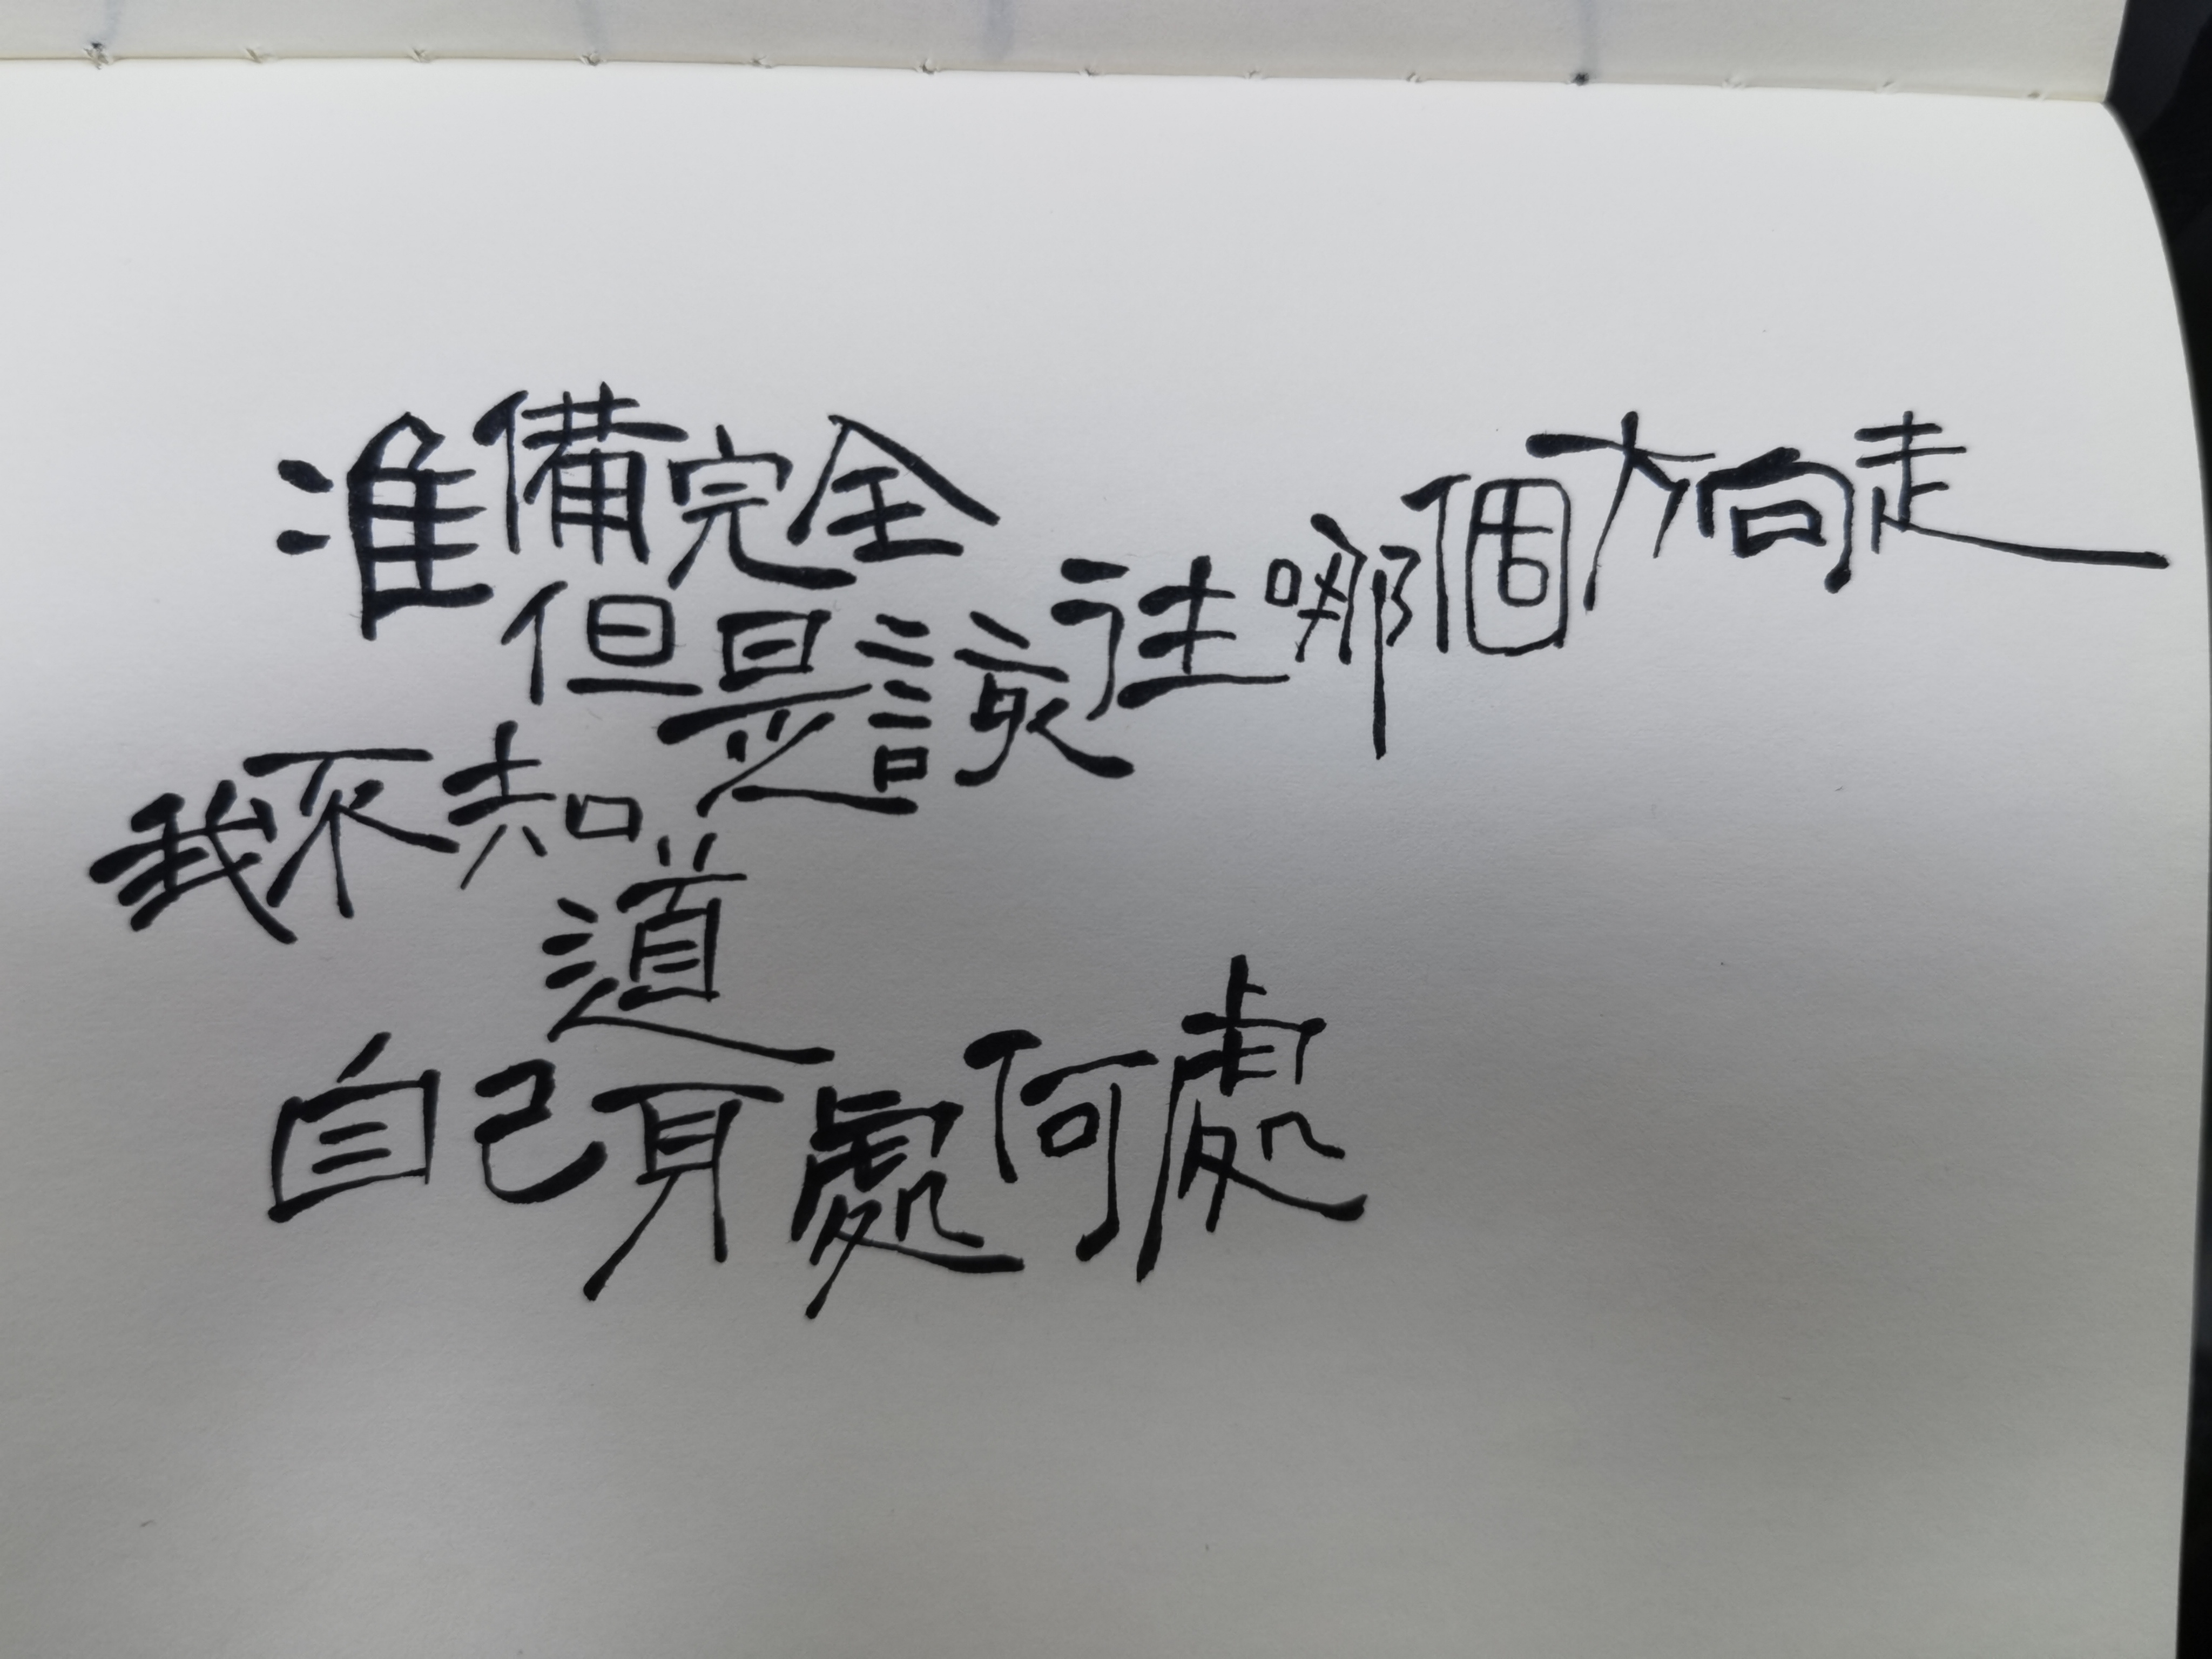 准備完全
但是該往哪個方向走
我不知道
自己身處何處